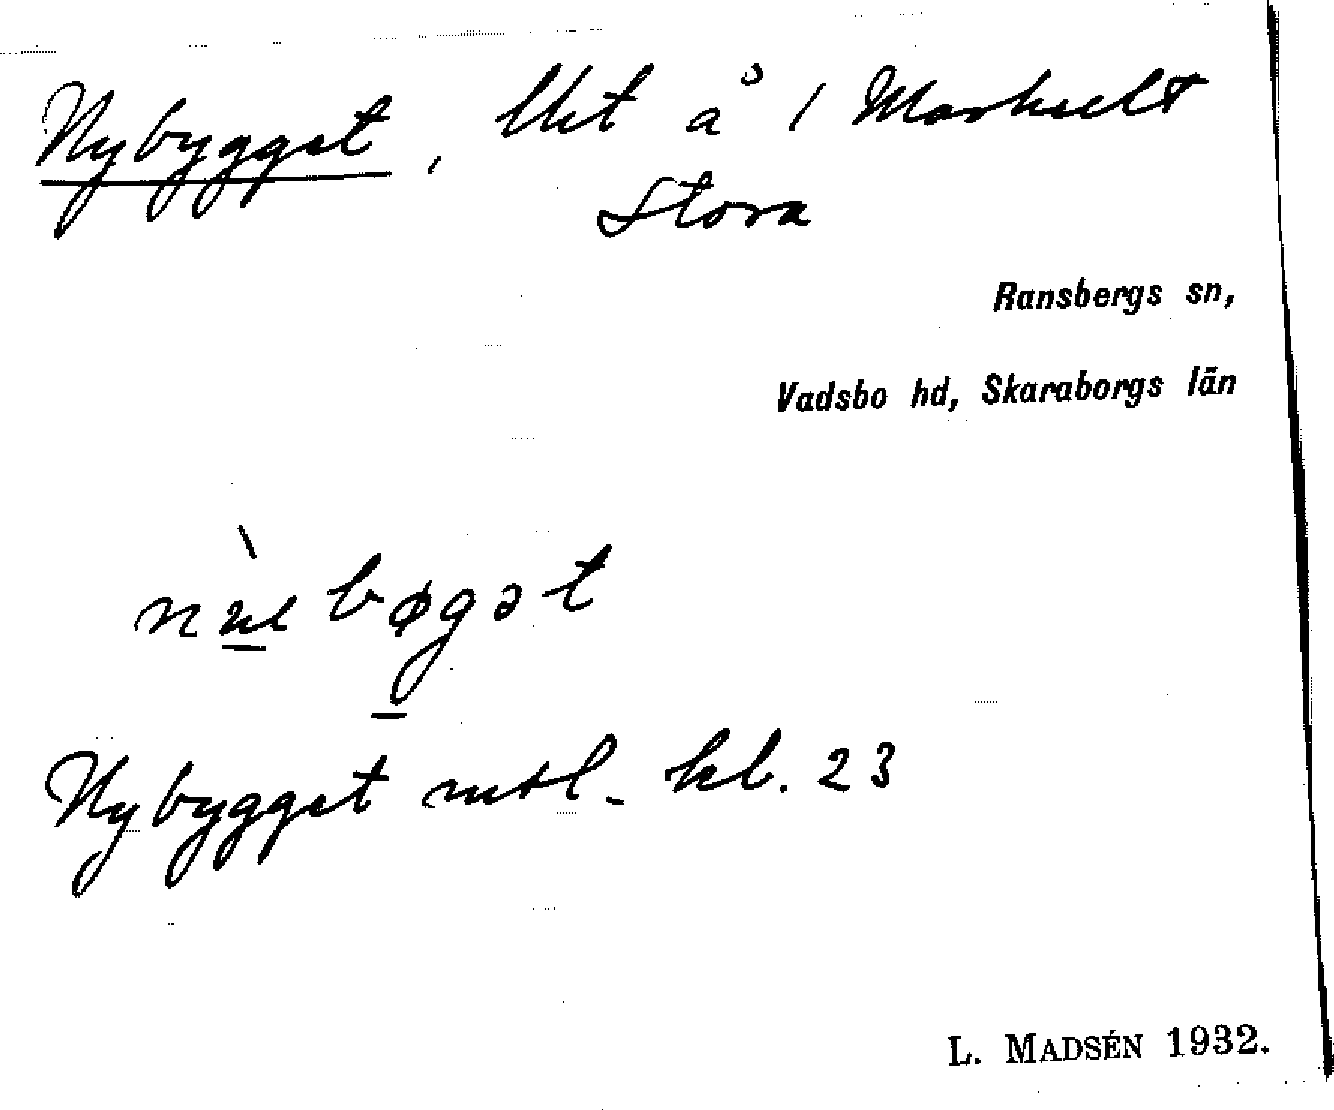 Nybygget, lht å 1 Markult
Stora
Ransbergs sn,
Vadsbo hd, Skaraborgs län
bøgət
Nybygget mtl. kb. 23
L. MADSÉN 1932.